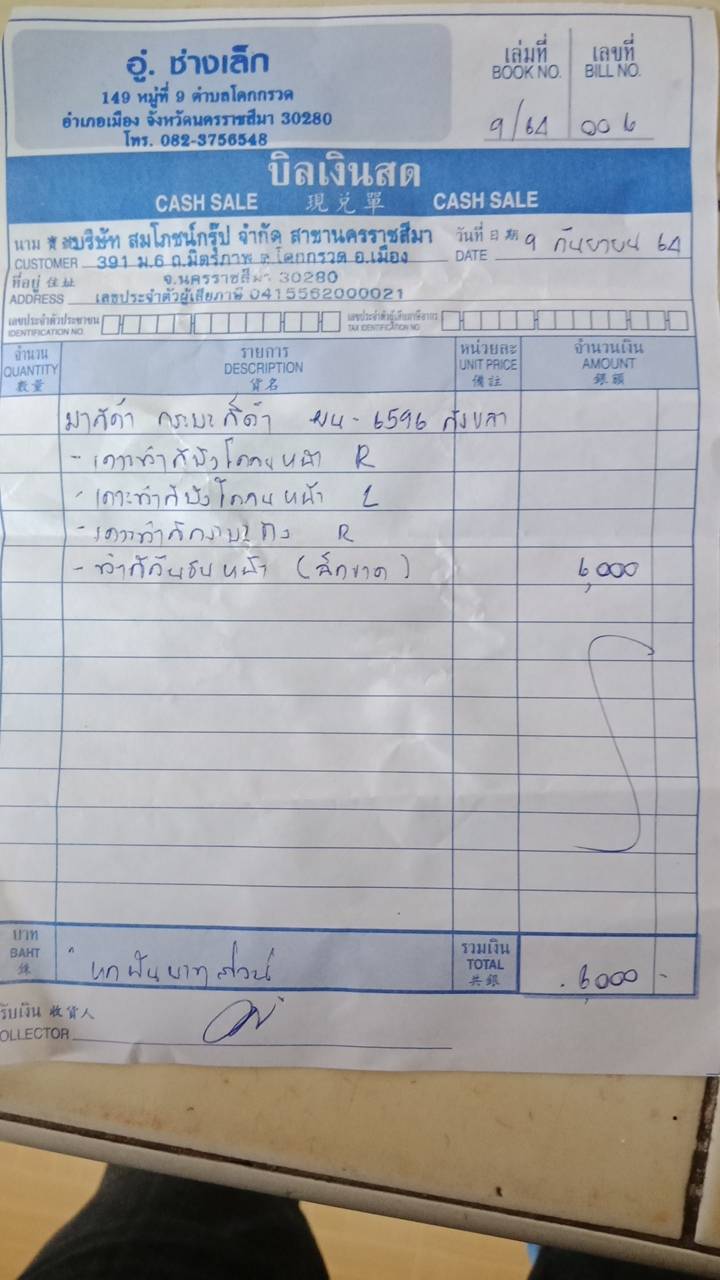 อู่. ช่างเล็ก
149 หมู่ที่ 9 ตำบลโคกกรวด
อำเภอเมือง จังหวัดนครราชสีมา 30280
โทร. 082-3756548
เล่มที่ เลขที่
BOOK NO. BILL NO.
9/64 006
บิลเงินสด
CASH SALE 現兌單 CASH SALE
นาม บริษัท สมโภชน์กรุ๊ป จำกัด สาขานครราชสีมา วันที่ 日期 9 กันยายน 64
CUSTOMER 391 ม.6 ถ.มิตรภาพ ต.โคกกรวด อ.เมือง DATE
ที่อยู่ 住址 จ.นครราชสีมา 30280
ADDRESS เลขประจำตัวผู้เสียภาษี 0415562000021
เลขประจำตัวประชาชน เลขประจำตัวผู้เสียภาษีอากร
IDENTIFICATION NO. TAX IDENTIFICATION NO.
จำนวน รายการ หน่วยละ จำนวนเงิน
QUANTITY DESCRIPTION UNIT PRICE AMOUNT
數量 貨名 備註 銀額
กระบะสีดำ ผน - 6596 สงขลา
- เคาะทำสีบังโคลนหน้า R
- เคาะทำสีบังโคลนหน้า L
- เคาะทำสี R
- ทำสีกันชนหน้า (ฉีกขาด) 6,000
บาท รวมเงิน
BAHT หกพันบาทถ้วน TOTAL 6,000 -
銖 共銀
รับเงิน 收貨人
OLLECTOR